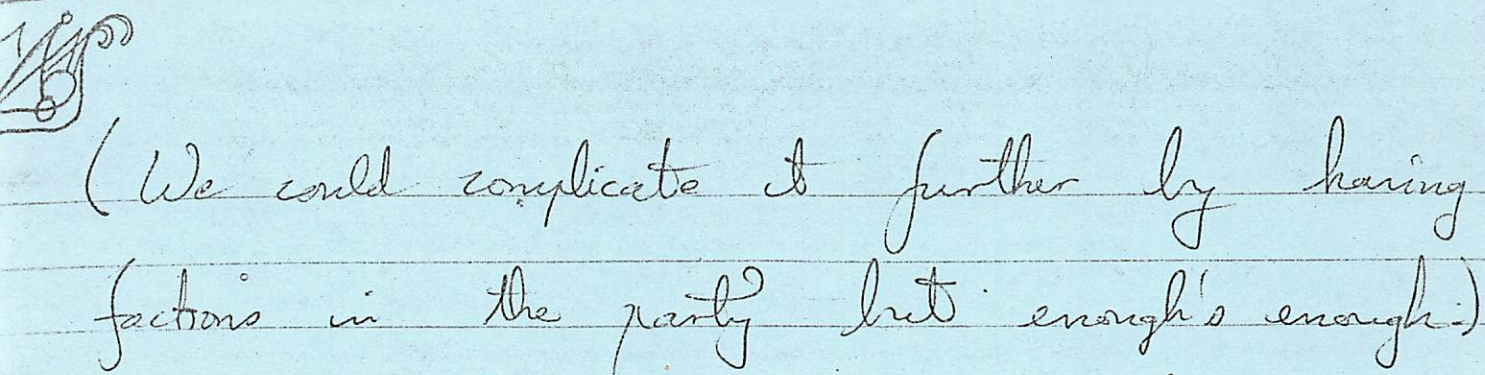 (We could complicate it further by having
factions in the party but enough's enough.)